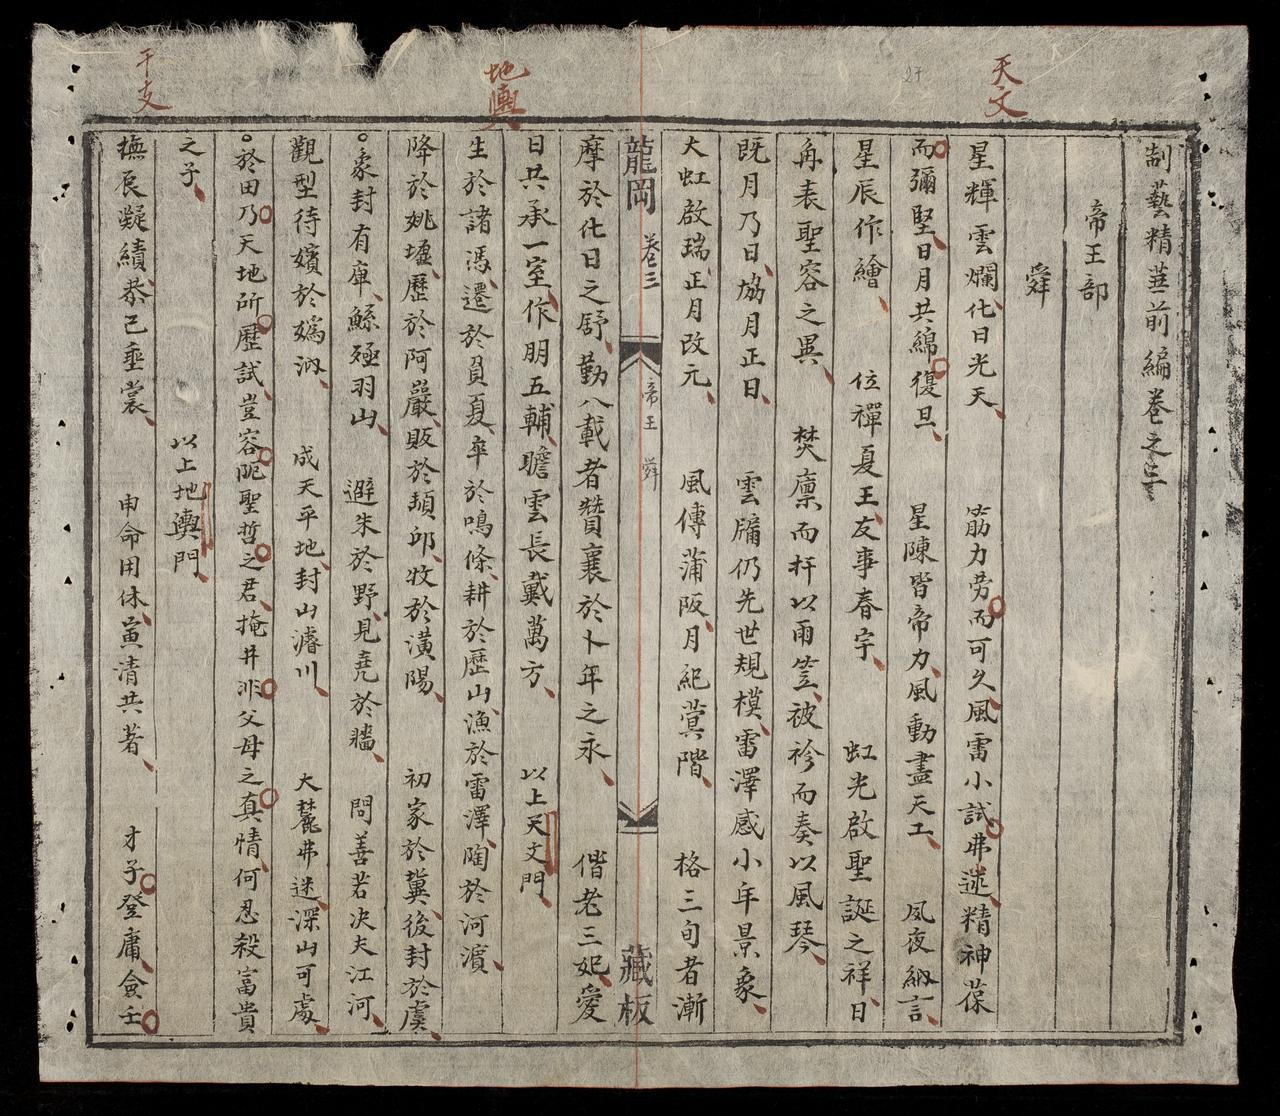 天文
地輿
干支
制藝精華前編卷之三
帝王部
舜
星輝雲爛、化日光天、 筋力勞而可久、風雷小試弗迷、精神葆
而彌堅、日月共綿復旦、 星陳皆帝力、風動盡天工、 夙夜納言、
星辰作繪、 位禪夏王、友事春宇、 虹光啟聖誕之祥、日
冉表聖容之異、 焚廩而扞以雨笠、被袗而奏以風琴、
既月乃日、協月正日、 雲牖仍先世規模、雷澤感小年景象、
大虹啟瑞、正月改元、 風傳蒲阪、月紀蓂階、 格三旬者漸
龍岡 卷三 帝王 舜 藏板
摩於化日之舒、勤八載者贊襄於卜年之永、 偕老三妃、愛
日共承一室、作朋五輔、瞻雲長戴萬方、 以上天文門、
生於諸馮、遷於負夏、卒於鳴條、耕於歷山、漁於雷澤、陶於河濱、
降於姚墟、歷於阿巖、販於頓邱、牧於潢陽、 初家於冀、後封於虞、
○象封有庳、鯀殛羽山、 避朱於野、見堯於牆、 問善若决夫江河、
觀型待嬪於嬀汭、 成天平地、封山濬川、 大麓弗迷、深山可處、
○於田乃天地所歷試、豈容阨聖哲之君、掩井非父母之真情、何忍殺富貴
之子、
以上地輿門、
撫辰凝績、恭己垂裳、 申命用休、寅清共著、 才子登庸、僉壬